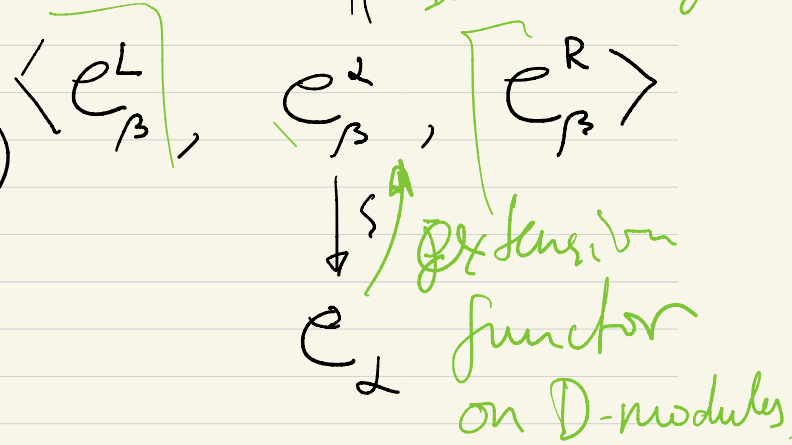 ⟨ e^L_β , e^α_β , e^R_β ⟩
↓ ∫ extension
functor
e_α
on D-modules